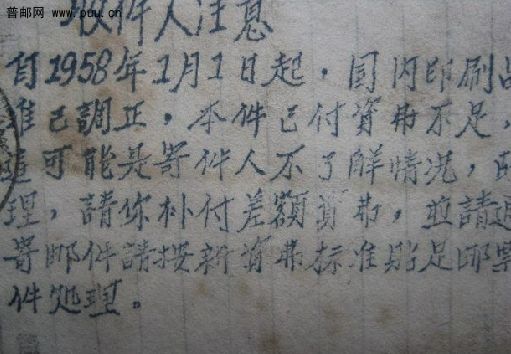 普邮网
www.puu.cn
收件人注意
自1958年1月1日起，国内印刷品
准已調正，本件已付資弗不足，
可能是寄件人不了解情况，
理，請你补付差額資弗，並請
寄邮件請按新資弗标准贴足邮票
件处理。